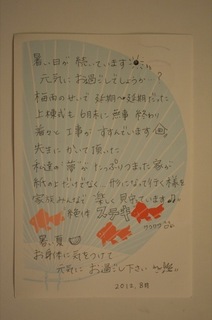 暑い日が続いています
元気にお過ごしでしょうか…?
梅雨のせいで延期へ延期だった
上棟式も6月末に無事終わり
着々と工事がすすんでいます
先生にかいて頂いた
私達の夢がたっぷりつまった家が
紙の上だけでなく、形になって行く様を
家族みんなで楽しく見守っています♪
ステキ
ワクワク
暑い夏
お身体に気をつけて
元気にお過ごし下さいね
2012. 8月